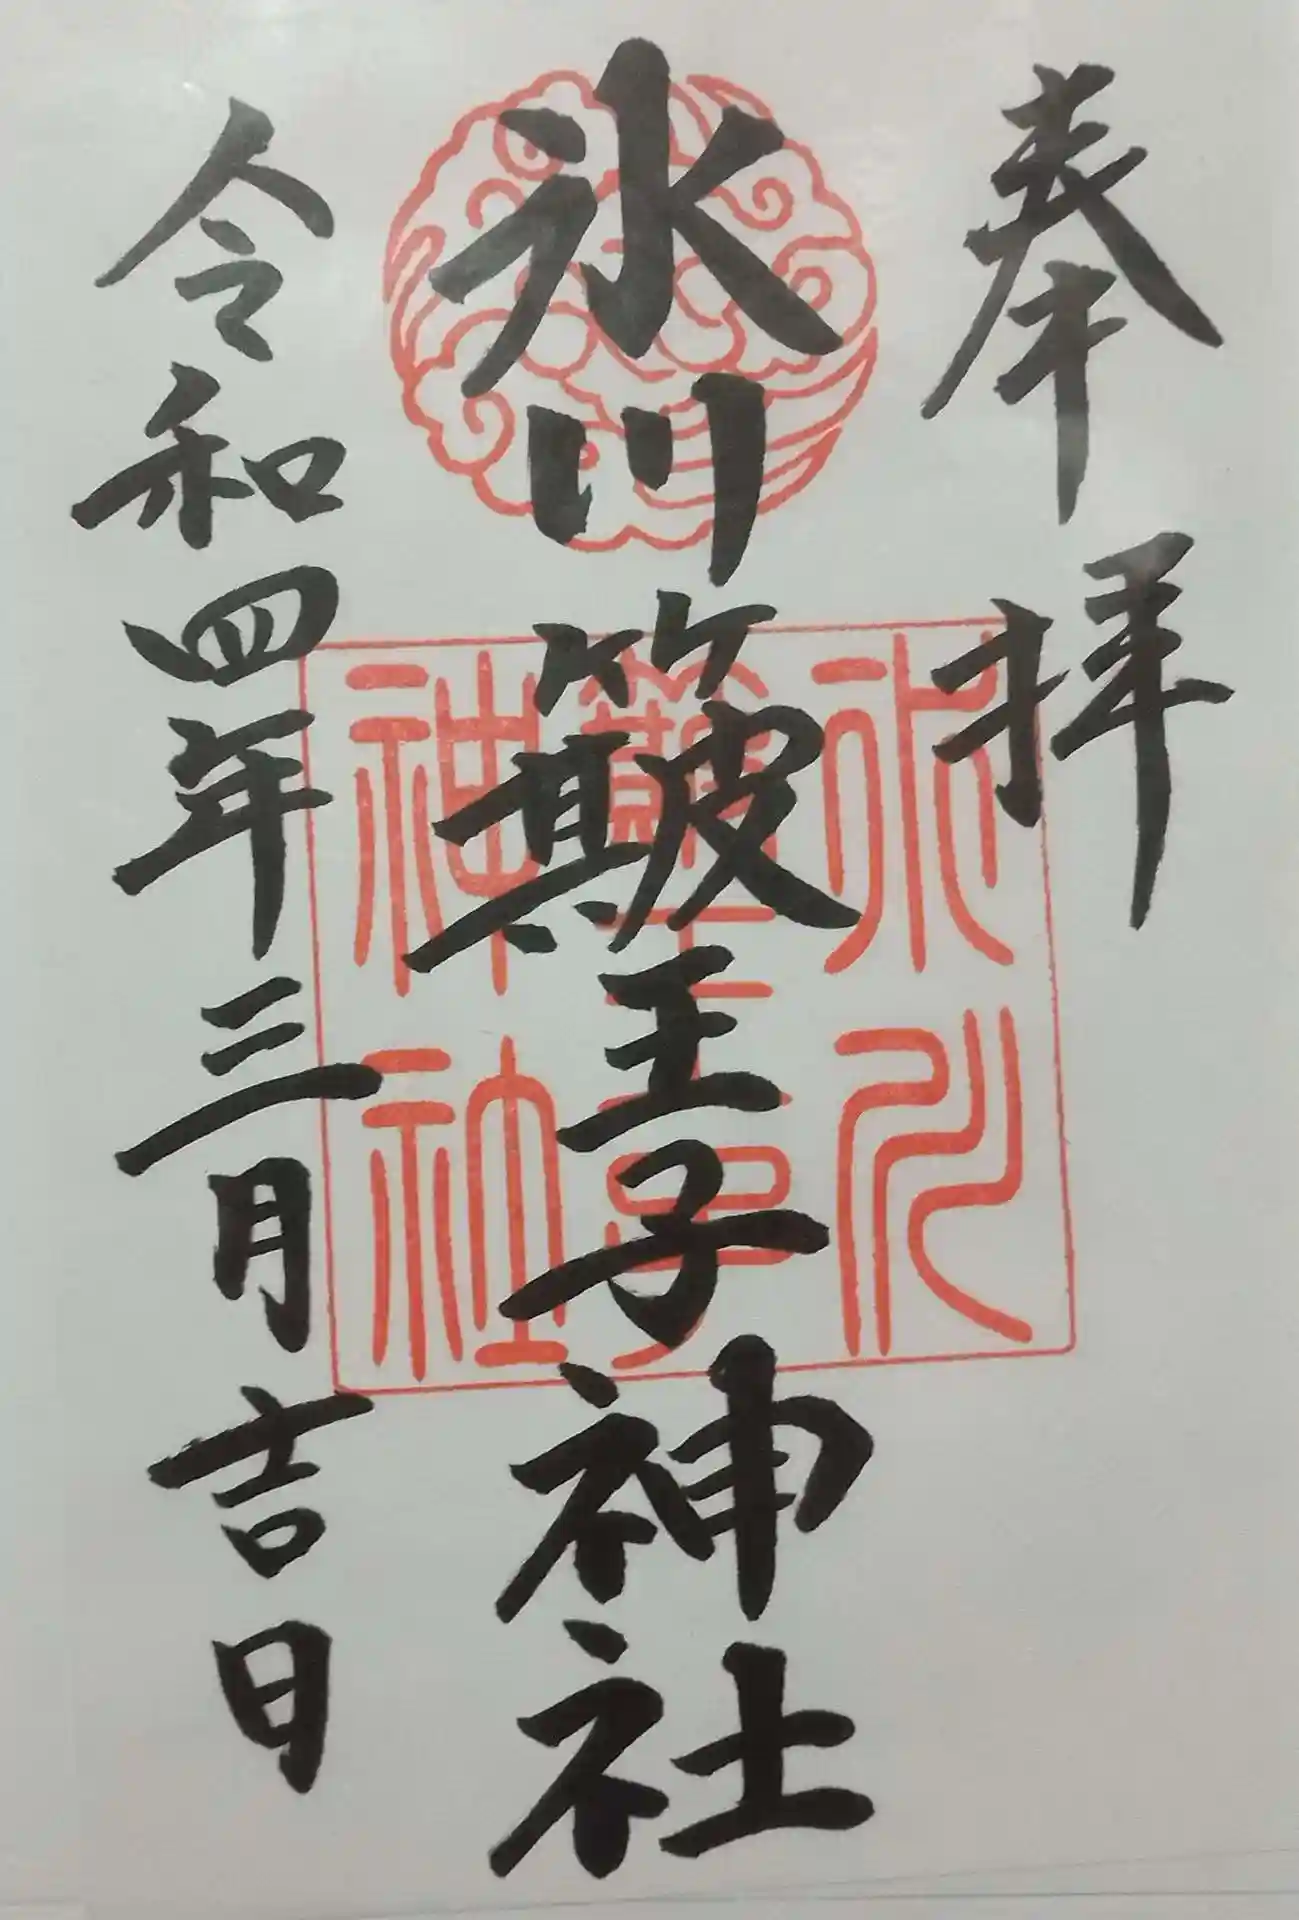 奉拝
氷川簸王子神社
令和四年三月吉日
氷川
簸王子
神社